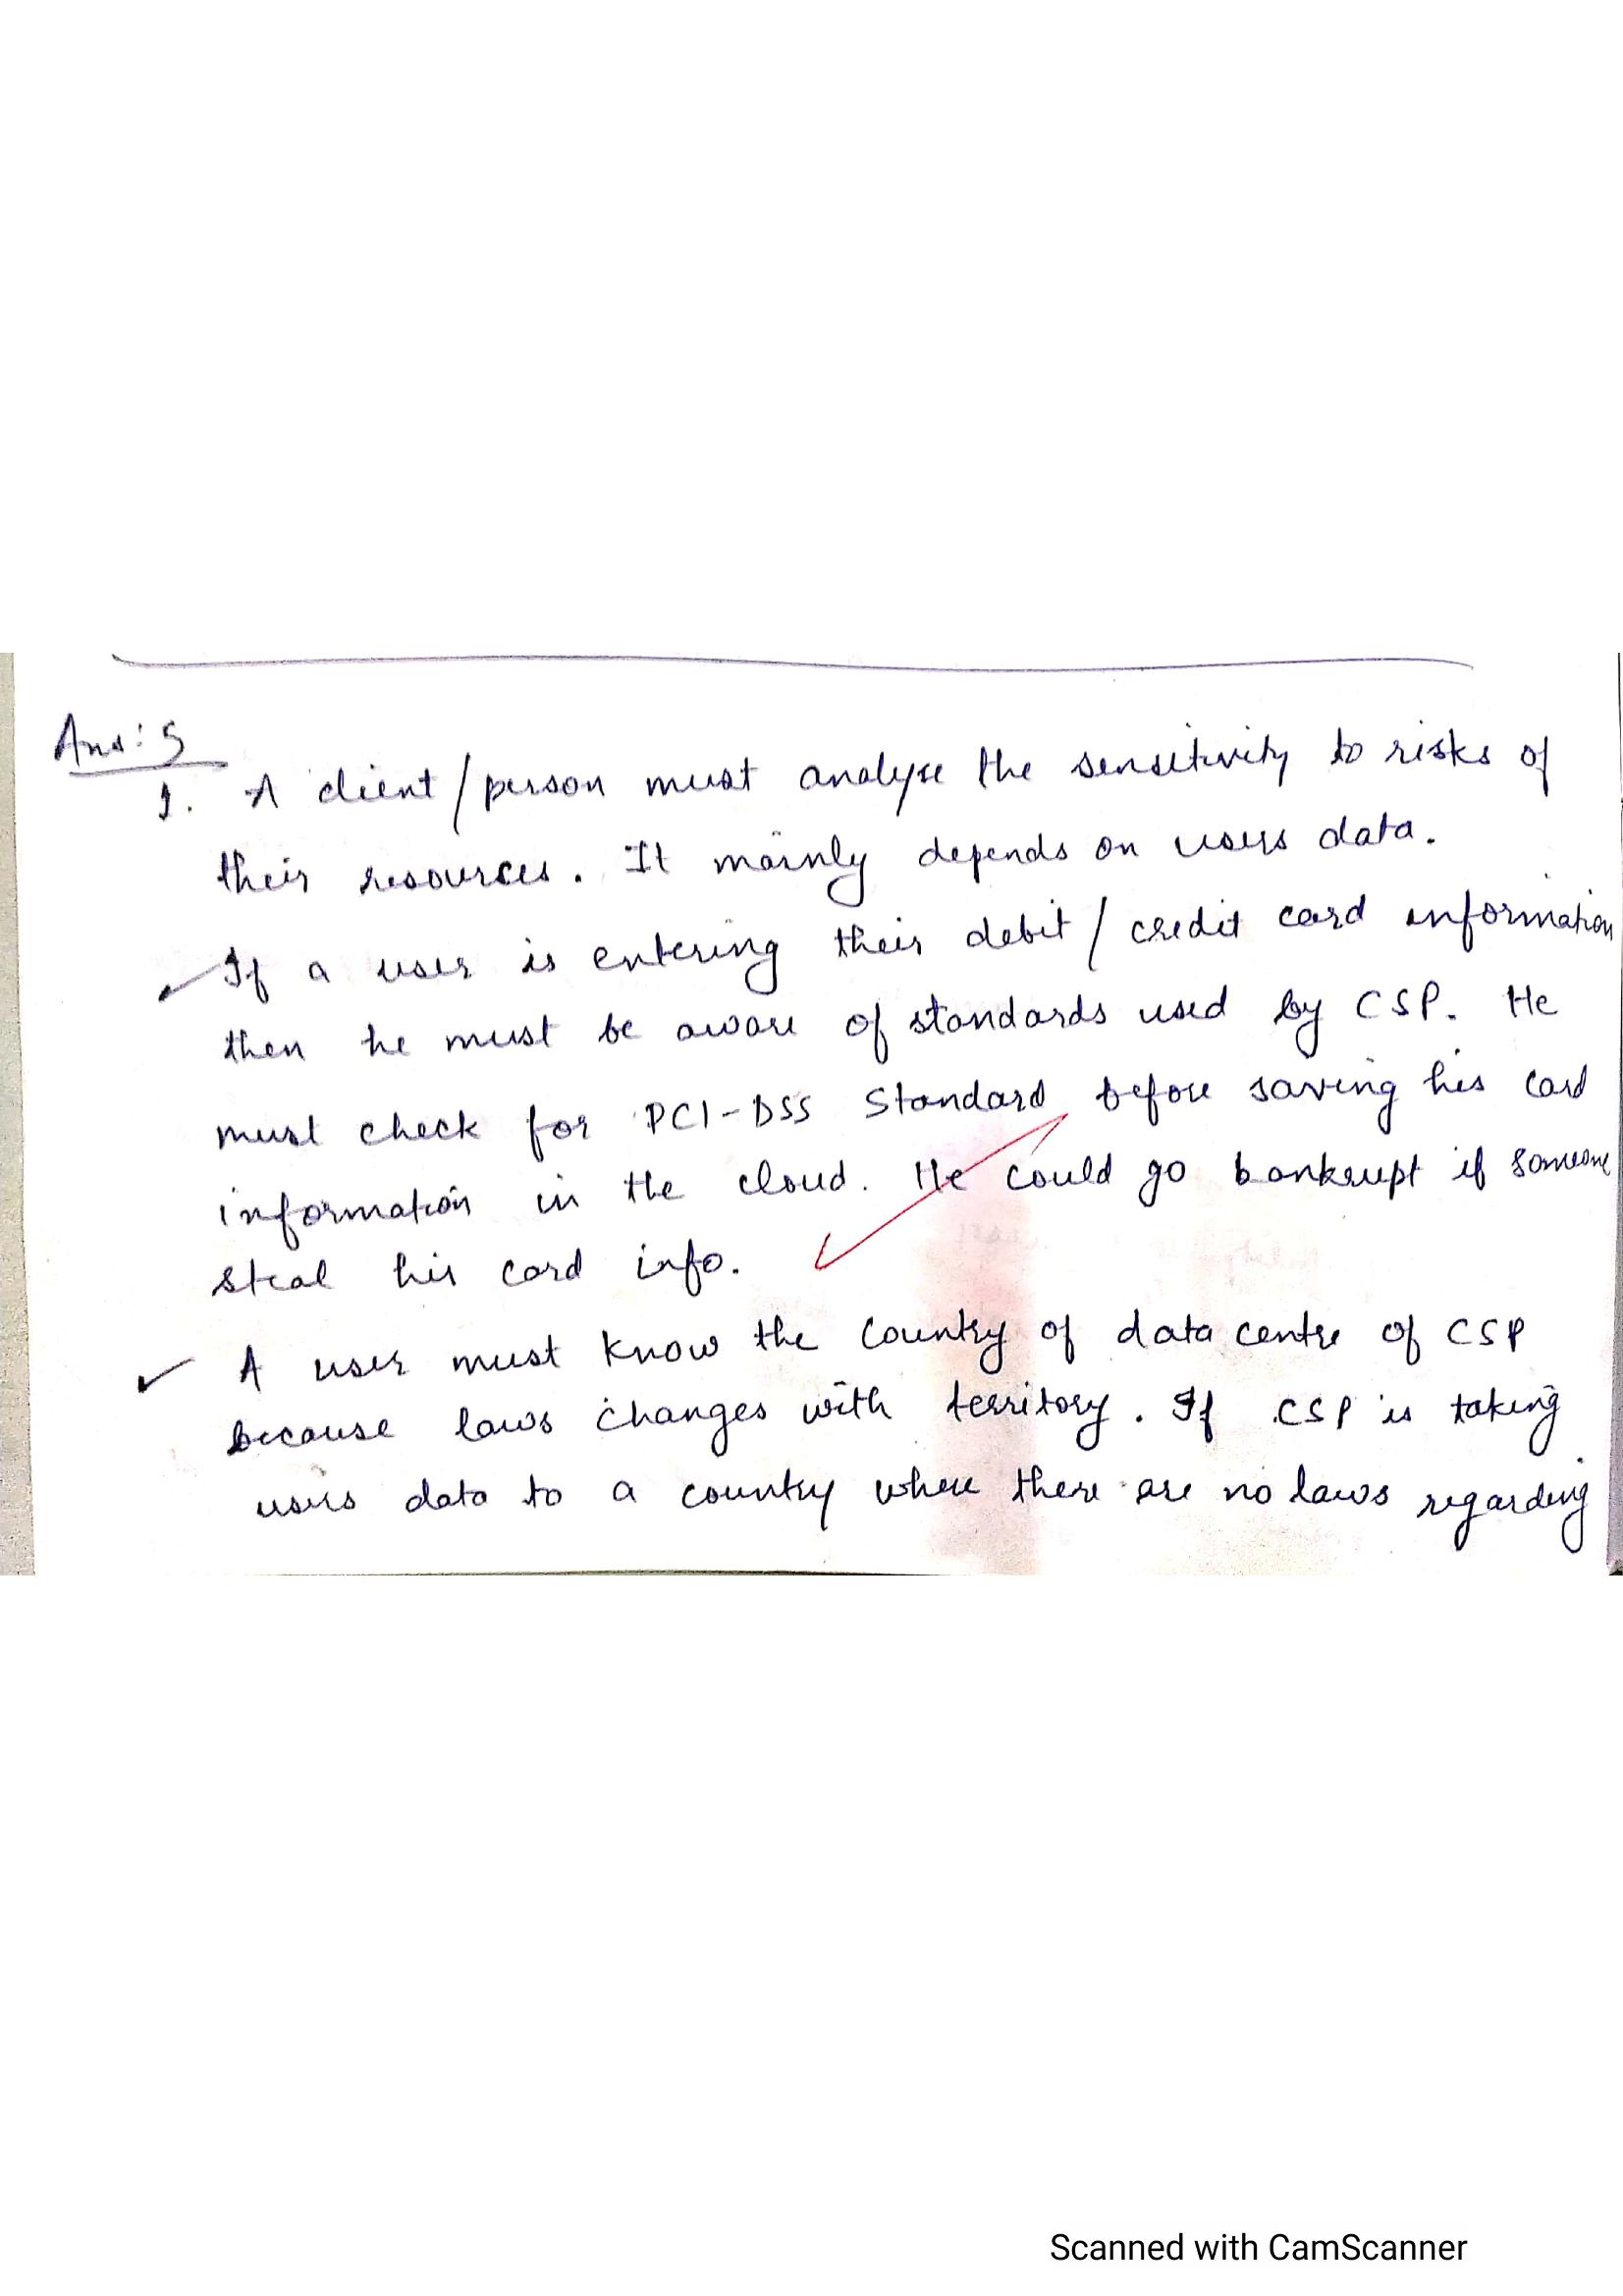 Ans: 5
1. A client/person must analyse the sensitivity to risks of
their resources. It mainly depends on users data.
✓ If a user is entering their debit/credit card information
then he must be aware of standards used by CSP. He
must check for PCI-DSS Standard before saving his card
information in the cloud. He could go bankrupt if someone
steal his card info.
✓ A user must know the country of data centre of CSP
because laws changes with territory. If CSP is taking
users data to a country where there are no laws regarding
Scanned with CamScanner